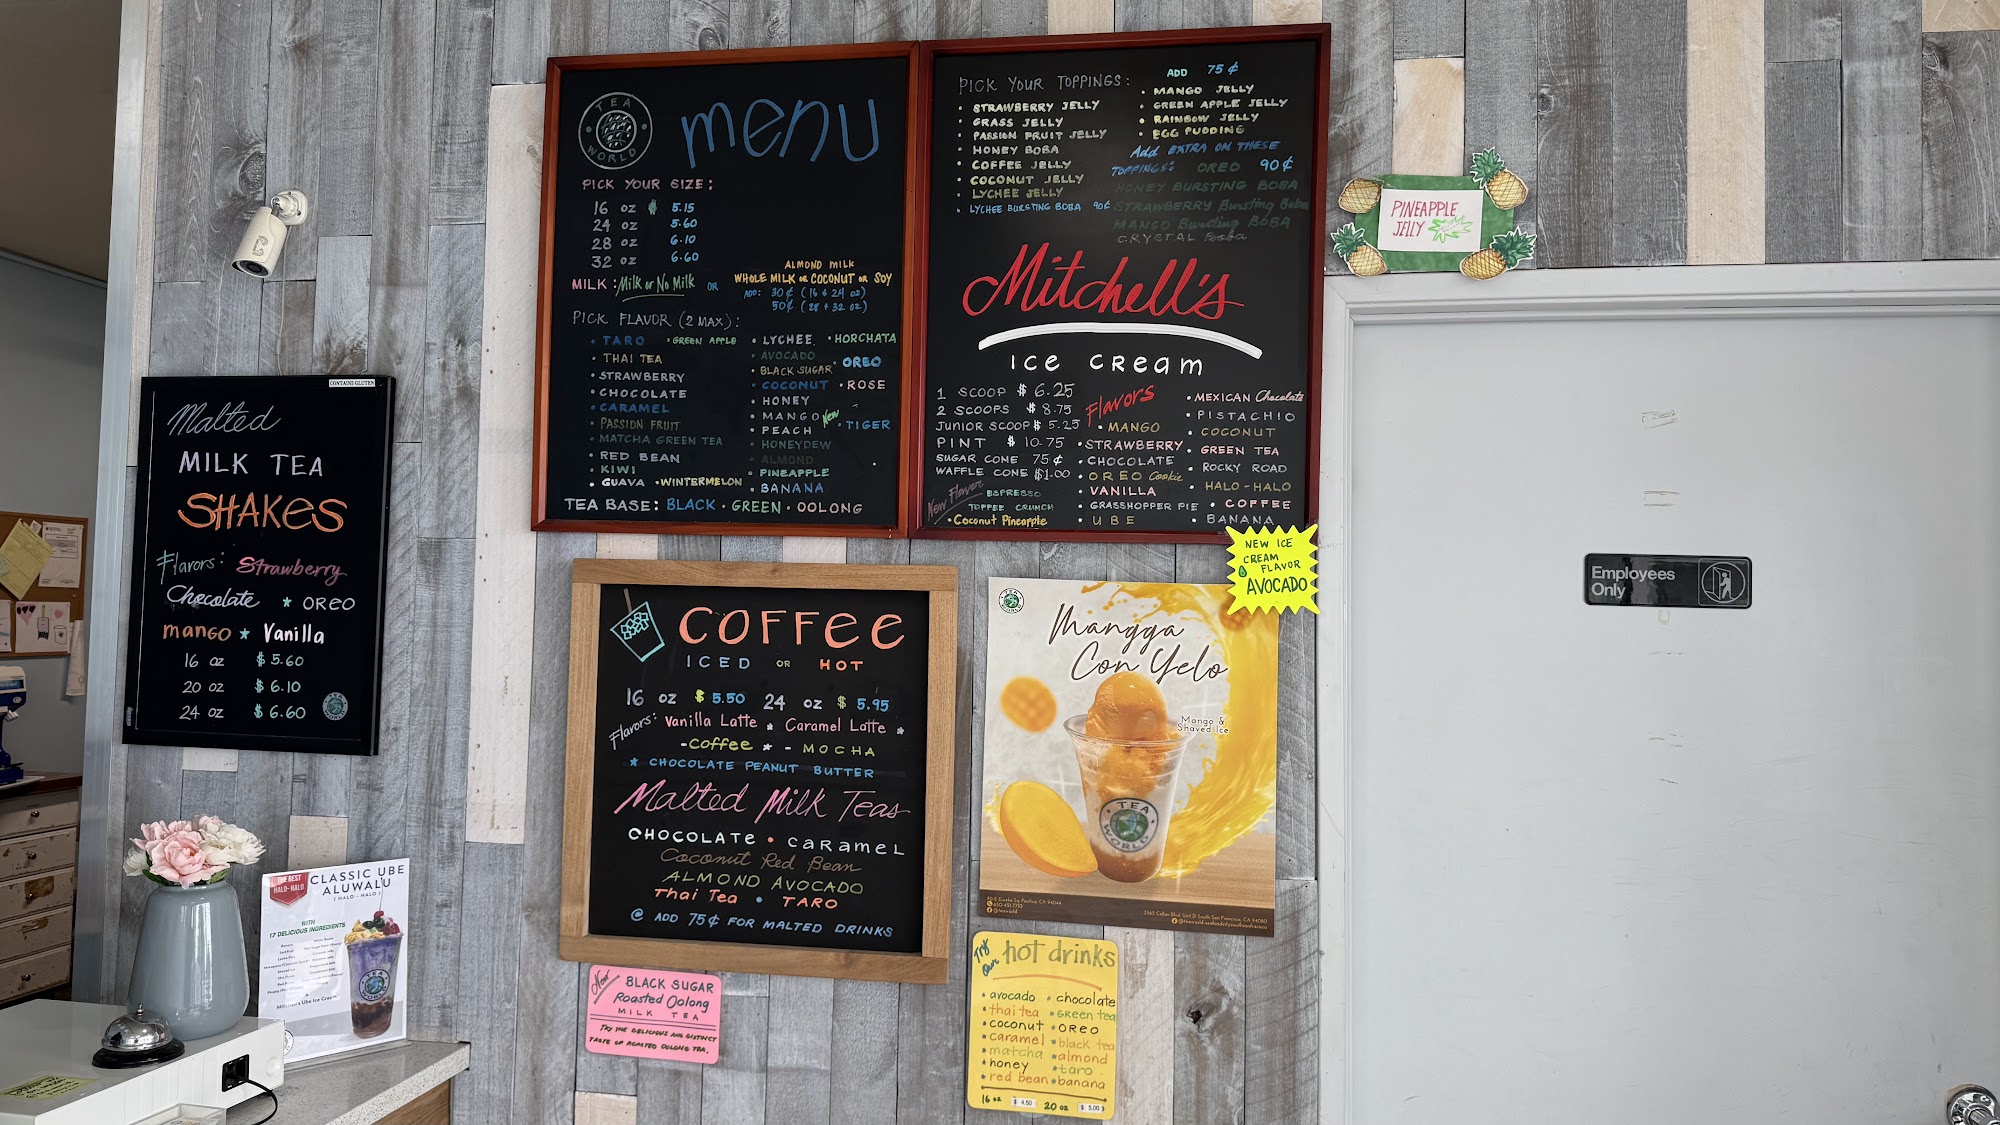 CONTAINS GLUTEN
Malted
MILK TEA
SHAKES
Flavors: Strawberry
Chocolate * OREO
mango * Vanilla
16 oz $ 5.60
20 oz $ 6.10
24 oz $ 6.60
TEA WORLD
menu
PICK YOUR SIZE:
16 oz $ 5.15
24 oz 5.60
28 oz 6.10
32 oz 6.60
MILK: Milk or No Milk OR
ALMOND MILK
WHOLE MILK OR COCONUT OR SOY
ADD: 30¢ (16 & 24 oz)
50¢ (28 & 32 oz)
PICK FLAVOR (2 MAX):
• TARO • GREEN APPLE
• THAI TEA
• STRAWBERRY
• CHOCOLATE
• CARAMEL
• PASSION FRUIT
• MATCHA GREEN TEA
• RED BEAN
• KIWI
• GUAVA • WINTERMELON
• LYCHEE • HORCHATA
• AVOCADO • OREO
• BLACK SUGAR
• COCONUT • ROSE
• HONEY
• MANGO
• PEACH New • TIGER
• HONEYDEW
• ALMOND
• PINEAPPLE
• BANANA
TEA BASE: BLACK • GREEN • OOLONG
PICK YOUR TOPPINGS: ADD 75¢
• STRAWBERRY JELLY
• GRASS JELLY
• PASSION FRUIT JELLY
• HONEY BOBA
• COFFEE JELLY
• COCONUT JELLY
• LYCHEE JELLY
• LYCHEE BURSTING BOBA 90¢
• MANGO JELLY
• GREEN APPLE JELLY
• RAINBOW JELLY
• EGG PUDDING
Add EXTRA ON THESE
TOPPINGS: OREO 90¢
HONEY BURSTING BOBA
STRAWBERRY Bursting Boba
MANGO Bursting BOBA
CRYSTAL Boba
Mitchell's
ICE CREAM
1 SCOOP $ 6.25
2 SCOOPS $ 8.75
JUNIOR SCOOP $ 5.25
PINT $ 10.75
SUGAR CONE 75¢
WAFFLE CONE $1.00
New Flavor ESPRESSO
TOFFEE CRUNCH
• Coconut Pineapple
Flavors
• MANGO
• STRAWBERRY
• CHOCOLATE
• OREO Cookie
• VANILLA
• GRASSHOPPER PIE
• UBE
• MEXICAN Chocolate
• PISTACHIO
• COCONUT
• GREEN TEA
• ROCKY ROAD
• HALO-HALO
• COFFEE
• BANANA
NEW ICE
CREAM
FLAVOR
AVOCADO
PINEAPPLE
JELLY
Employees
Only
COFFEE
ICED OR HOT
16 oz $ 5.50 24 oz $ 5.95
Flavors: Vanilla Latte * Caramel Latte *
-Coffee * - MOCHA
* CHOCOLATE PEANUT BUTTER
Malted Milk Teas
CHOCOLATE • CARAMEL
Coconut Red Bean
ALMOND AVOCADO
Thai Tea • TARO
@ ADD 75¢ FOR MALTED DRINKS
TEA WORLD
Mangga
Con Yelo
Mango &
Shaved Ice
TEA
WORLD
New BLACK SUGAR
Roasted Oolong
MILK TEA
TRY THE DELICIOUS AND DISTINCT
TASTE OF ROASTED OOLONG TEA.
Try Our hot drinks
• avocado • chocolate
• thai tea • GREEN tea
• coconut • OREO
• caramel • black tea
• matcha • almond
• honey • taro
• red bean • banana
16 oz $ 4.50 20 oz $ 5.00
THE BEST
HALO-HALO
CLASSIC UBE
ALUWALU
( HALO - HALO )
WITH
17 DELICIOUS INGREDIENTS
Mitchell's Ube Ice Cream
TEA
WORLD